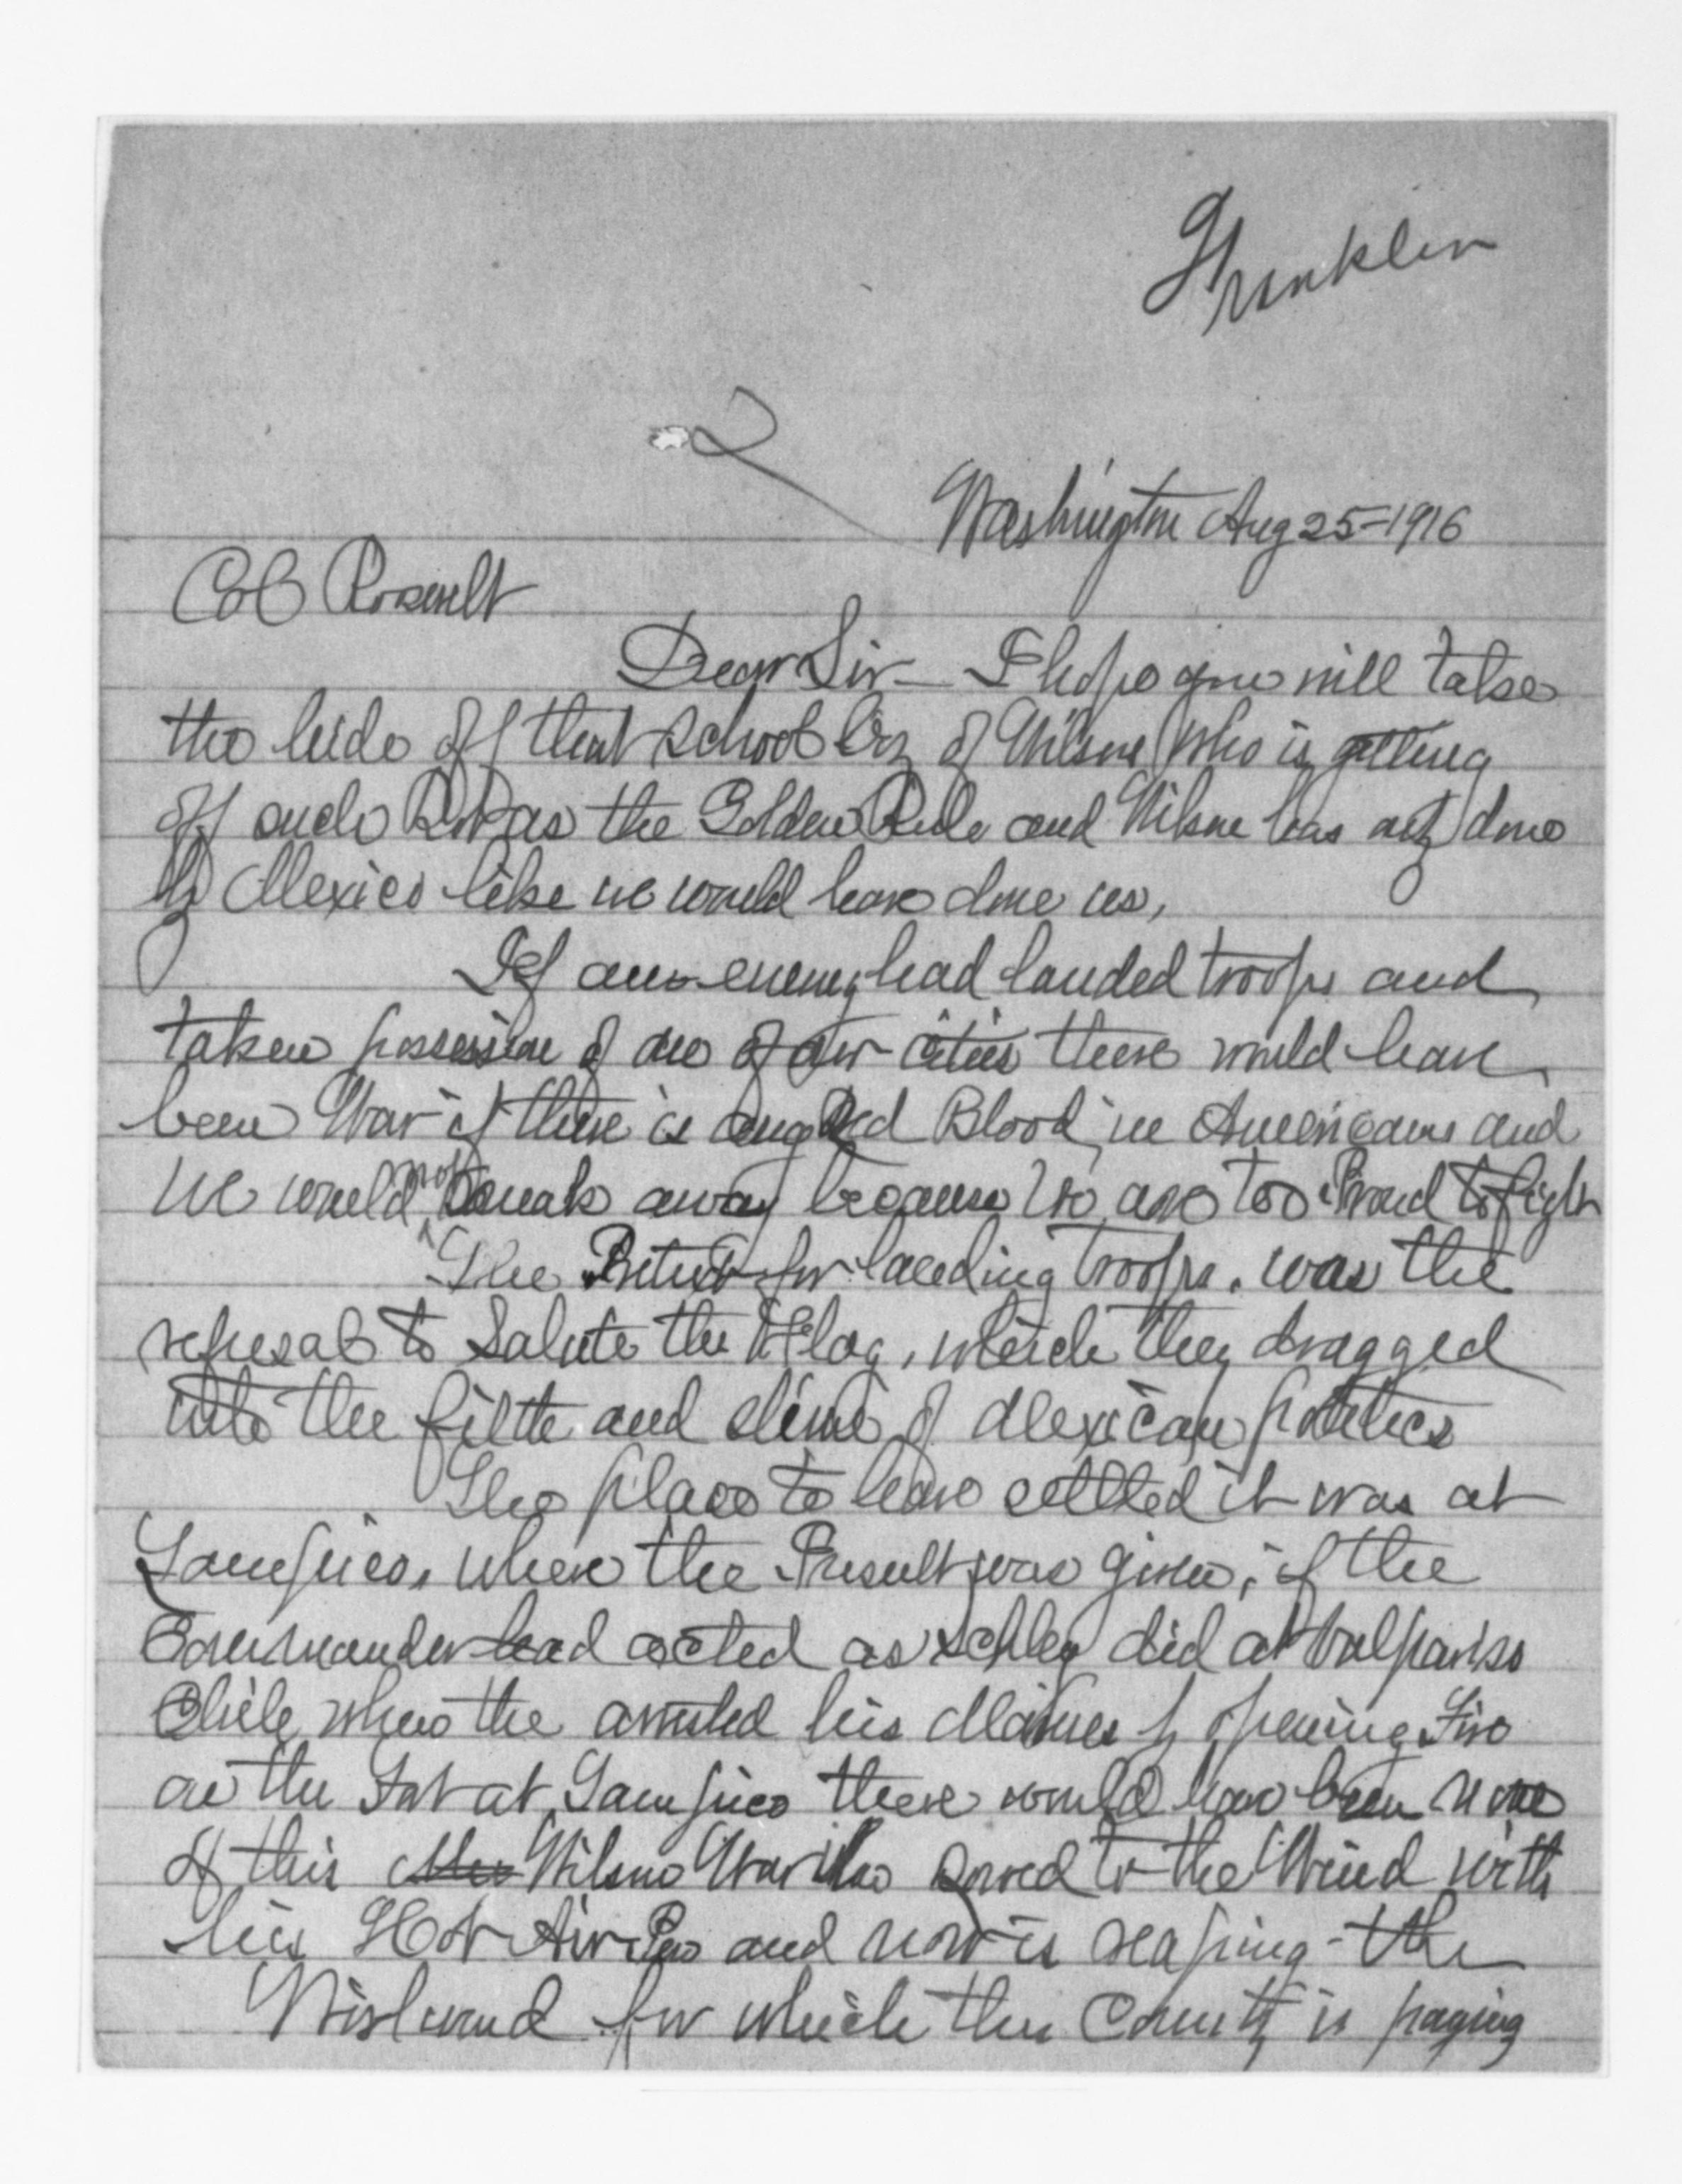 Franklin
Washington Aug 25-1916
Col Rosevelt
Dear Sir - I hope you will take
the hide off that school boy of Wilsons who is getting
off such Rot as the Golden Rule and Wilson has only done
by Mexico like we would have done us,
If an enemy had landed troops and
taken possession of one of our cities there would have
been War if there is any Red Blood in Americans and
we would not sneak away because we are too Proud to fight
The Pretext for landing troops. was the
refusal to Salute the Flag, which they dragged
into the filth and slime of Mexican politics
The place to have settled it was at
Tampico, where the Insult was given, if the
Commander had acted as Schley did at Valpariso
Chile when the arrested his Marines by opening Fire
on the Fort at Tampico there would have been none
of this Wilson War who sowed to the Wind with
his Hot Air and now is reaping the
Wirlwind for which this County is paying